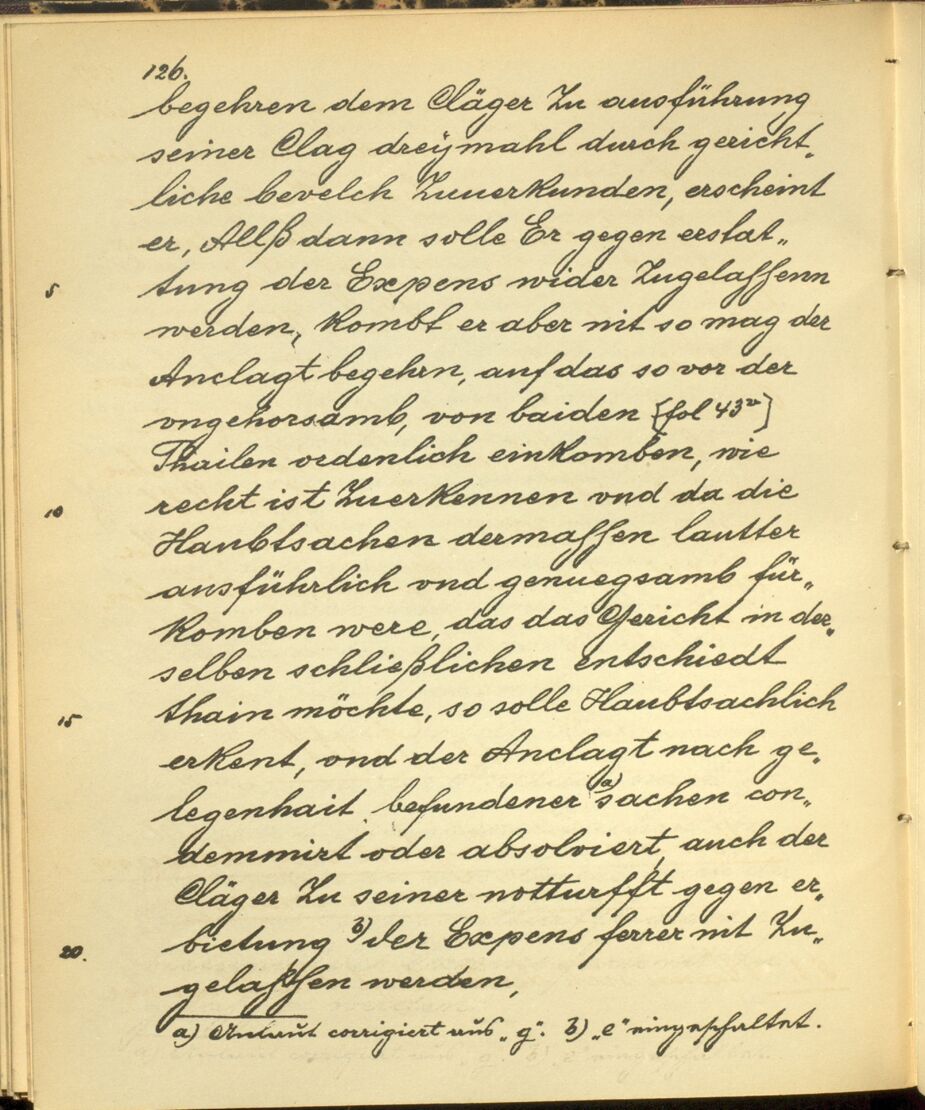 126.
begehren dem Cläger Zu ausführung
seiner Clag dreÿmahl durch gericht„
liche bevelch Zuuerkunden, erscheint
er, Allß dann solle Er gegen erstat„
5 tung der Expens wider Zugelassenn
werden, kombt er aber nit so mag der
Anclagt begehrn, auf das so vor der
vngehorsamb, von baiden [fol 43v]
Thailen ordenlich einkomben, wie
10 recht ist Zuerkennen vnd da die
Haubtsachen dermassen lautter
ausführlich vnd genuegsamb für„
komben were, das das Gericht in der„
selben schließlichen entschiedt
15 thain möchte, so solle Haubtsachlich
erkent, vnd der Anclagt nach ge„
legenhait befundener a) sachen con„
demmirt oder absolviert, auch der
Cläger Zu seiner notturfft gegen er„
20. bietung b) der Expens ferrer nit Zu„
gelassen werden,
a) corrigiert aus „g“. b) „e“ eingeschaltet.